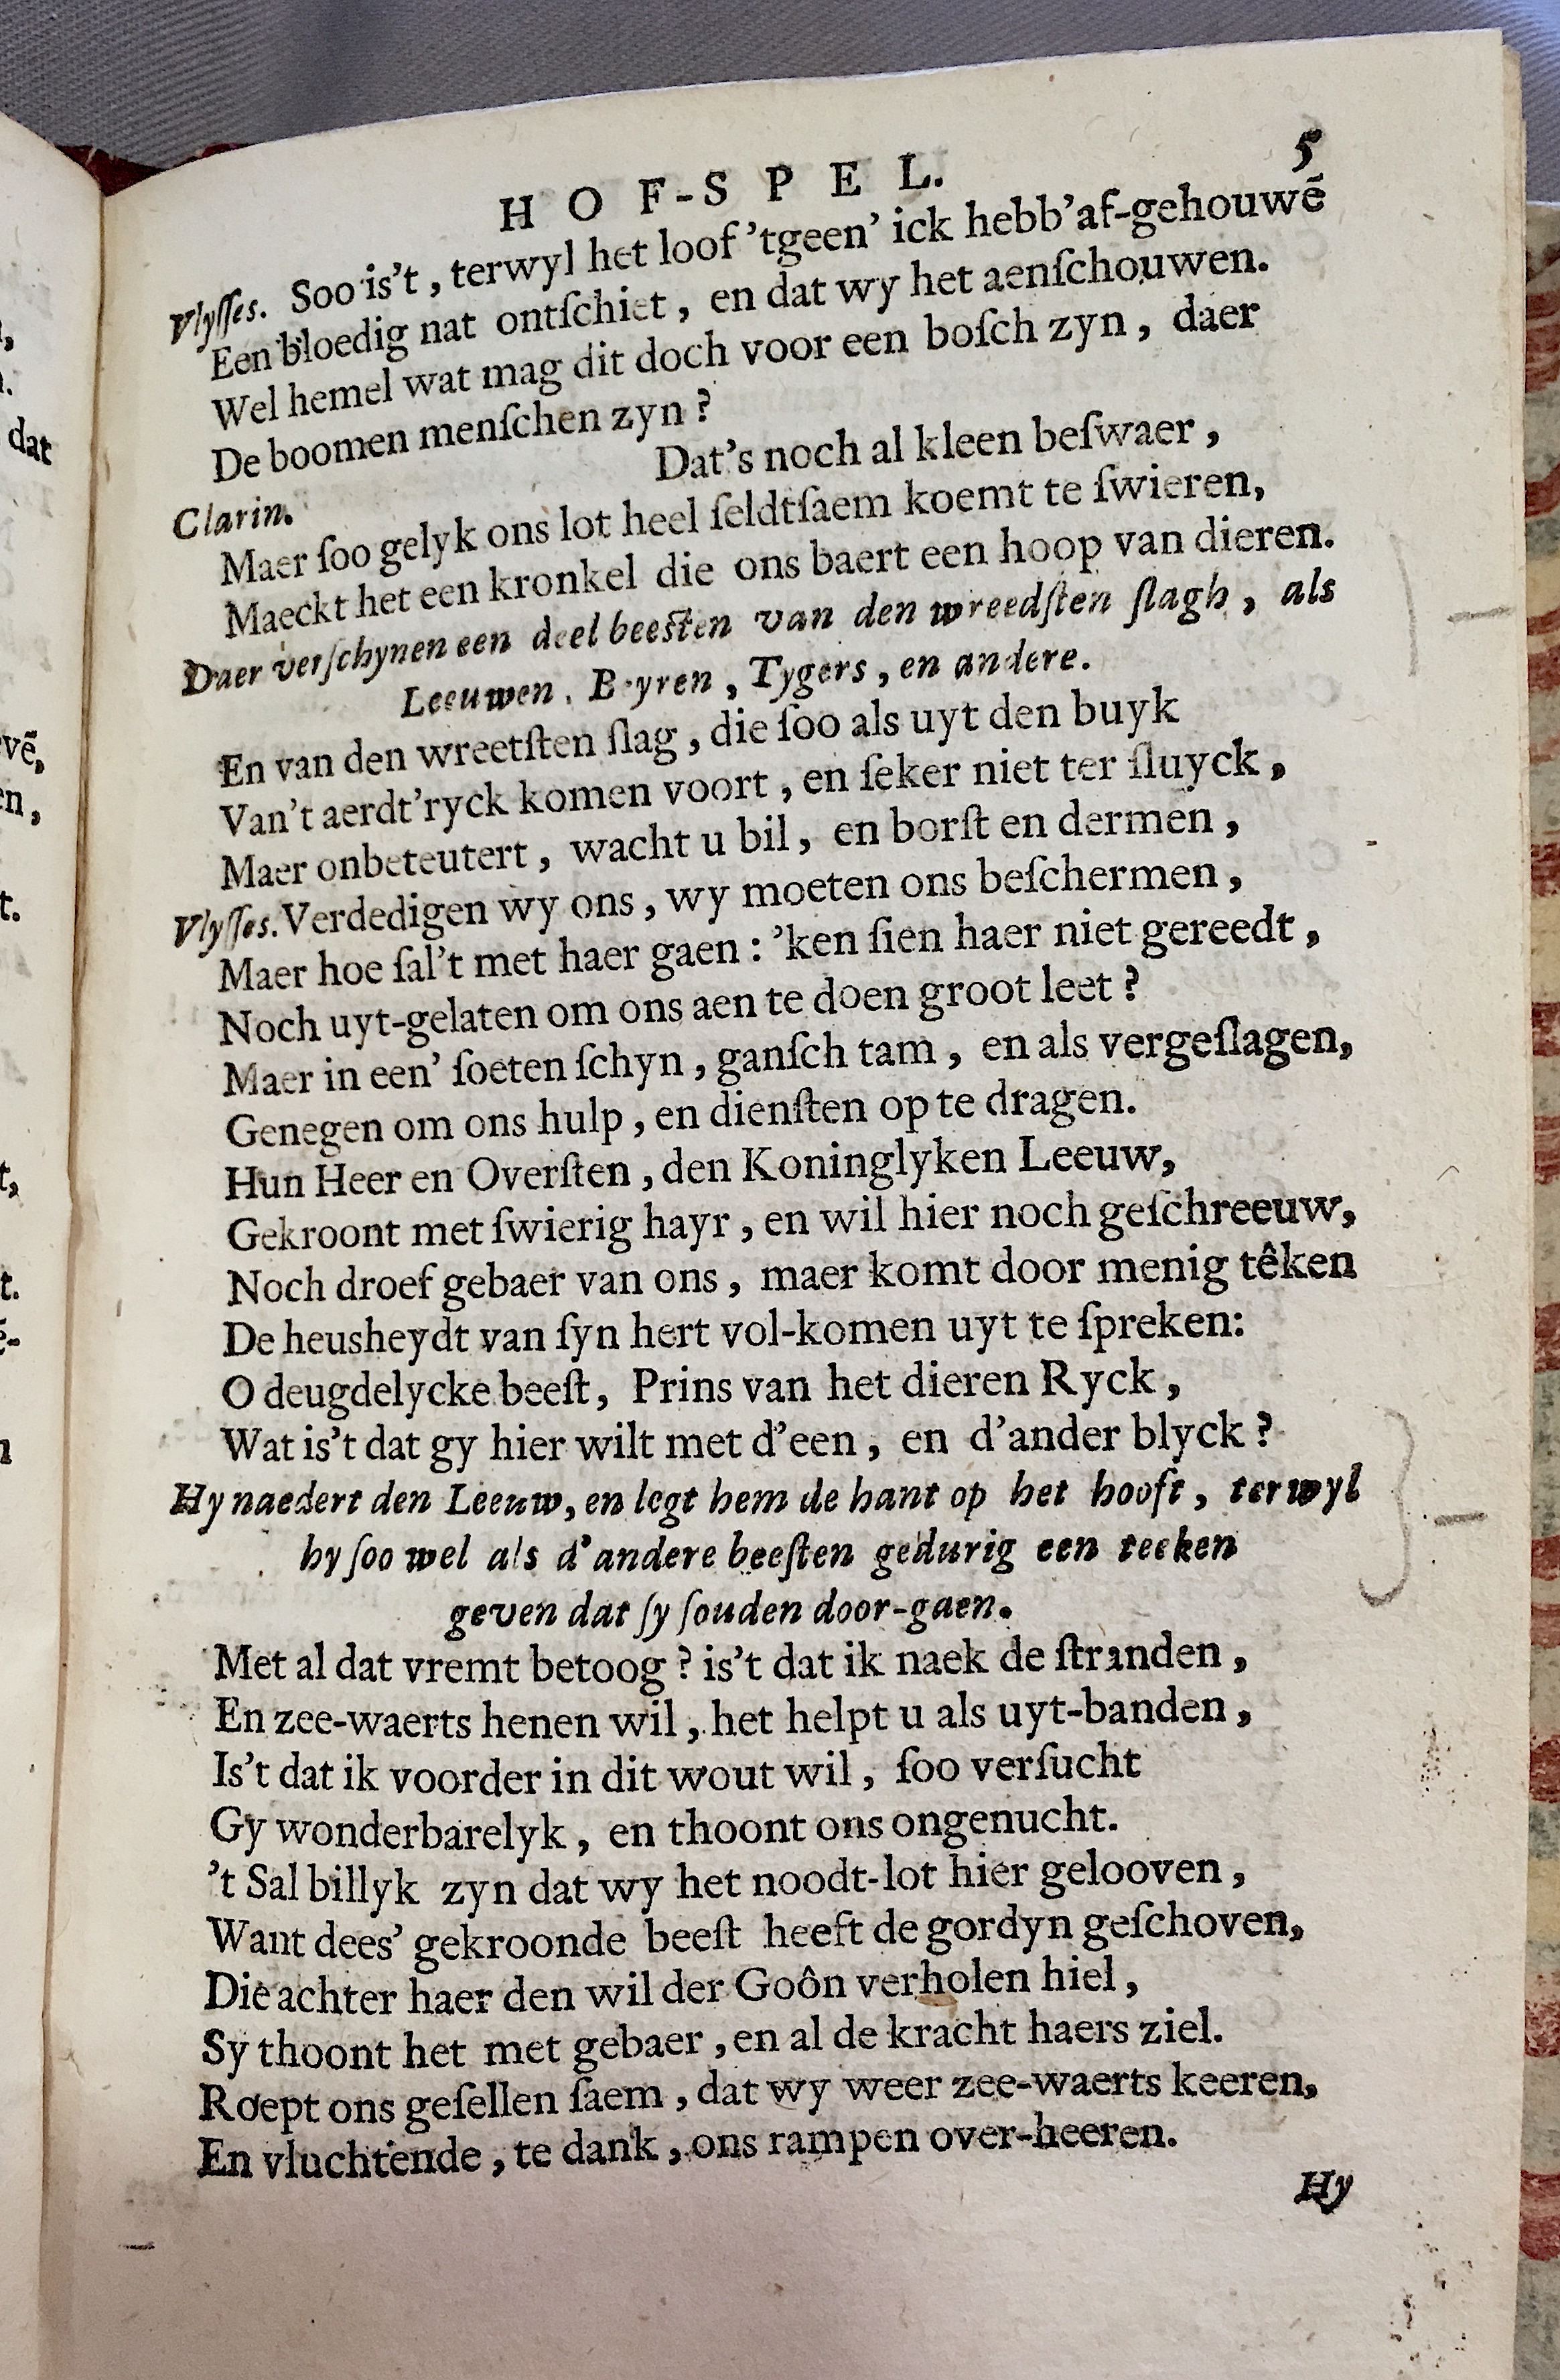 HOF-SPEL. 5
Vlyſſes. Soo is't, terwyl het loof 'tgeen' ick hebb'af-gehouwē
Een bloedig nat ontſchiet, en dat wy het aenſchouwen.
Wel hemel wat mag dit doch voor een boſch zyn, daer
De boomen menſchen zyn?
Clarin. Dat's noch al kleen beſwaer,
Maer ſoo gelyk ons lot heel ſeldtſaem koemt te ſwieren,
Maeckt het een kronkel die ons baert een hoop van dieren.
Daer verſchynen een deel beeſten van den wreedſten ſlagh, als
Leeuwen, Beyren, Tygers, en andere.
En van den wreetſten ſlag, die ſoo als uyt den buyk
Van't aerdt'ryck komen voort, en ſeker niet ter ſluyck,
Maer onbeteutert, wacht u bil, en borſt en dermen,
Vlyſſes. Verdedigen wy ons, wy moeten ons beſchermen,
Maer hoe ſal't met haer gaen: 'ken ſien haer niet gereedt,
Noch uyt-gelaten om ons aen te doen groot leet?
Maer in een' ſoeten ſchyn, ganſch tam, en als vergeſlagen,
Genegen om ons hulp, en dienſten op te dragen.
Hun Heer en Overſten, den Koninglyken Leeuw,
Gekroont met ſwierig hayr, en wil hier noch geſchreeuw,
Noch droef gebaer van ons, maer komt door menig têken
De heusheydt van ſyn hert vol-komen uyt te ſpreken:
O deugdelycke beeſt, Prins van het dieren Ryck,
Wat is't dat gy hier wilt met d'een, en d'ander blyck?
Hy naedert den Leeuw, en legt hem de hant op het hooft, terwyl
hy ſoo wel als d'andere beeſten gedurig een teeken
geven dat ſy ſouden door-gaen.
Met al dat vremt betoog? is't dat ik naek de ſtranden,
En zee-waerts henen wil, het helpt u als uyt-banden,
Is't dat ik voorder in dit wout wil, ſoo verſucht
Gy wonderbarelyk, en thoont ons ongenucht.
't Sal billyk zyn dat wy het noodt-lot hier gelooven,
Want dees' gekroonde beeſt heeft de gordyn geſchoven,
Die achter haer den wil der Goôn verholen hiel,
Sy thoont het met gebaer, en al de kracht haers ziel.
Roept ons geſellen ſaem, dat wy weer zee-waerts keeren,
En vluchtende, te dank, ons rampen over-heeren.
Hy